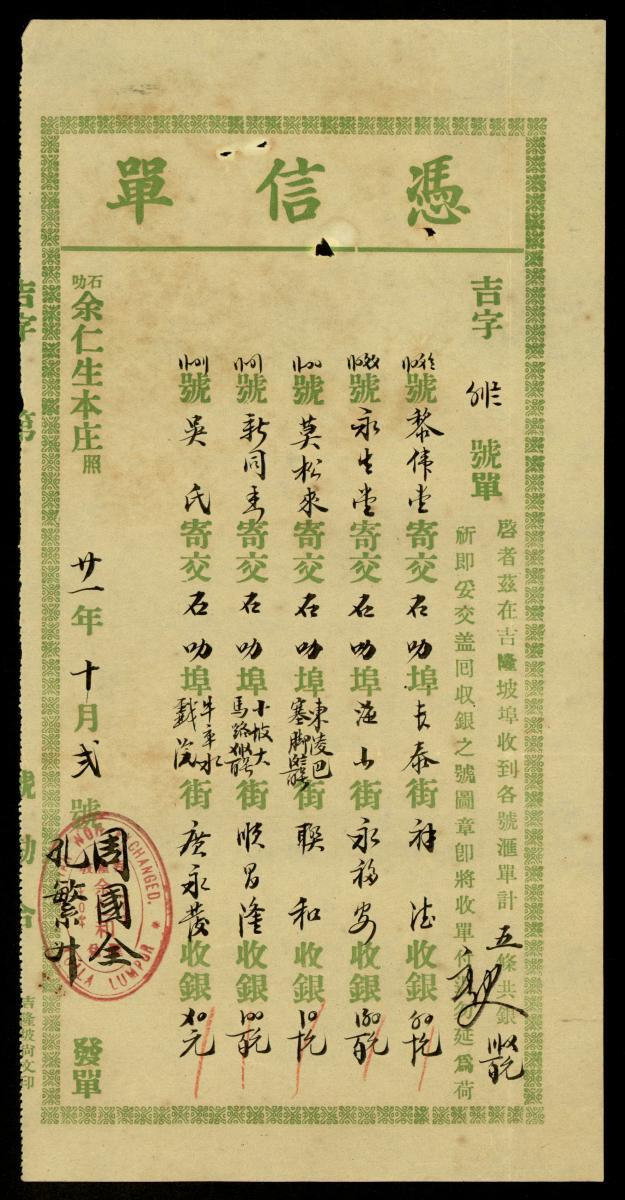 憑信單
吉字 號單
啓者茲在吉隆坡埠收到各號滙單計五條共銀
祈即妥交蓋回收銀之號圖章即將收單付 勿延爲荷
號黎偉堂寄交石叻埠長泰街祥德收銀
號永生堂寄交石叻埠海山街永福安收銀
號莫松來寄交石叻埠東陵巴塞脚 街聯和收銀
號新同基寄交石叻埠小坡大馬路 街順昌隆收銀
號吳氏寄交石叻埠牛車水戲院街廣永發收銀 元
石叻余仁生本庄照
廿一年十月弍號
周國全
孔繁升
發單
NOR CHANGED.
KUALA LUMPUR
吉字第 號 合
吉隆坡尚文印